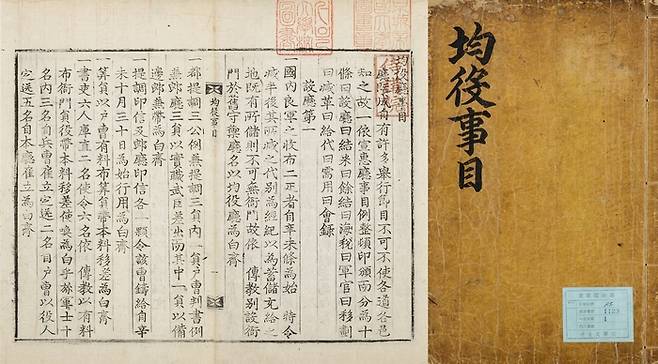 均役事目
廳旣成而有許多擧行節目不可不使各道各邑
知之故一依宣惠廳事目例登領印頒而分爲十
條曰設廳曰結米曰餘結曰海稅曰軍官曰移劃
曰減革曰給代曰需用曰會錄
設廳第一
一國內良軍之收布二疋者自辛未條爲始 特令
減半後其所減之代別爲經紀以爲蓄儲充給之
地旣有所儲則不可無衙門故依 傳敎別設衙
門於舊守禦廳名以均役廳爲白齊
均役事目
一都提調三公例兼提調三員內一員戶曹判書例
兼郞廳三員以實職武臣差出而其中一員以備
邊郞兼帶爲白齊
一提調印信及郞廳印信各一顆令該曹鑄給自辛
未十月三十日爲始行用爲白齊
一筭員以戶曹有料布筭員帶本料移差爲白齊
一書吏六人庫直二名使令六名依 傳敎以有料
布衙門員役帶本料移差使喚爲白乎旀軍士十
名內三名自兵曹崔立定送二名自戶曹以役人
定送五名自本廳崔立爲白齊
均役事目
1123
1